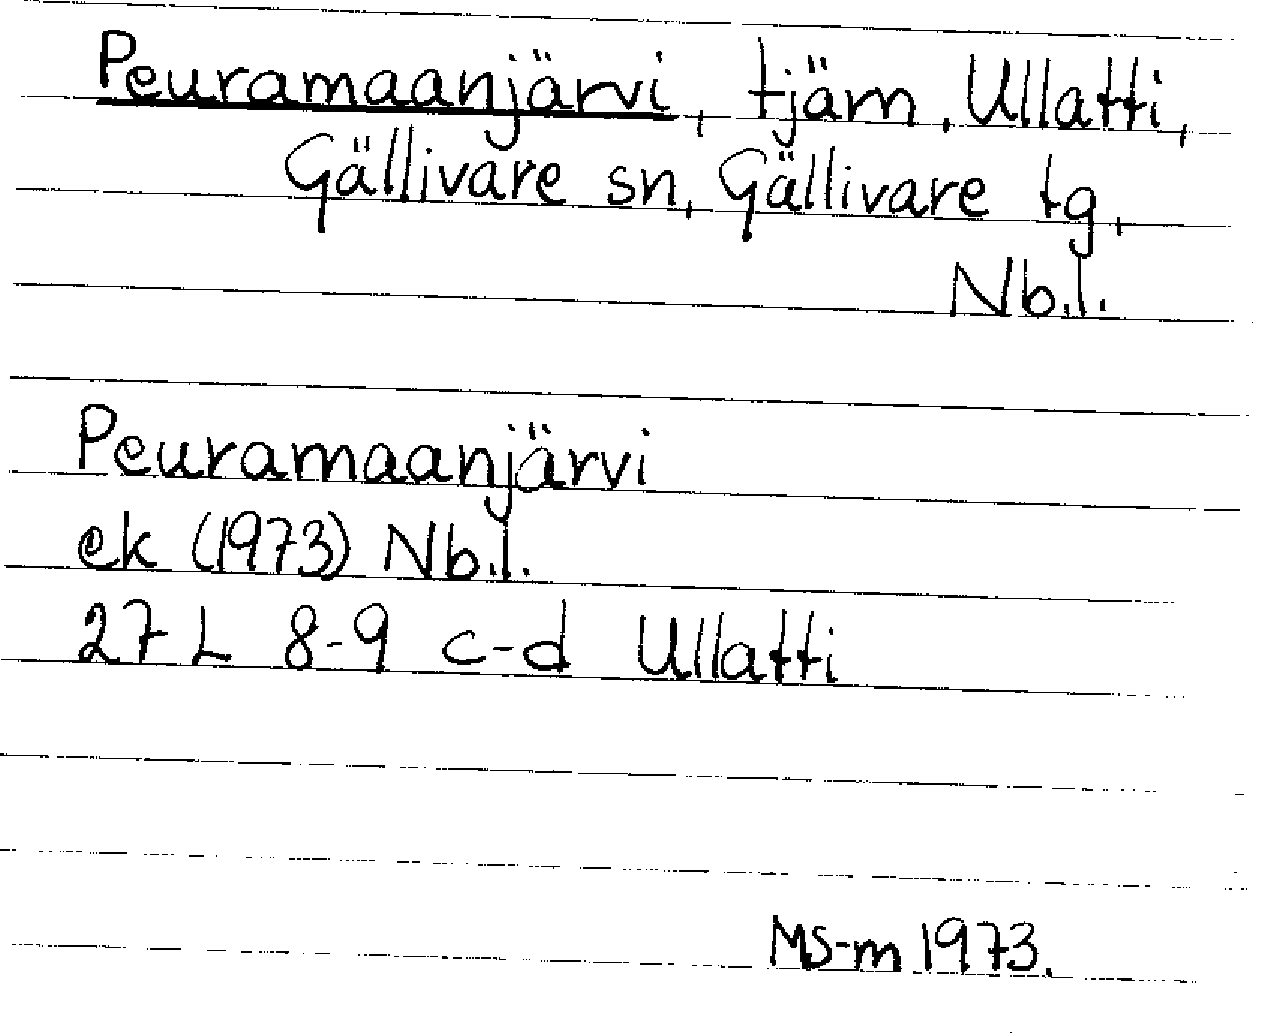 Peuramaanjärvi, tjäm, Ullatti,
Gällivare sn, Gällivare tg,
Nb.l.
Peuramaanjärvi
ek (1973) Nb.l.
27 L 8-9 c-d Ullatti
MS-m 1973.